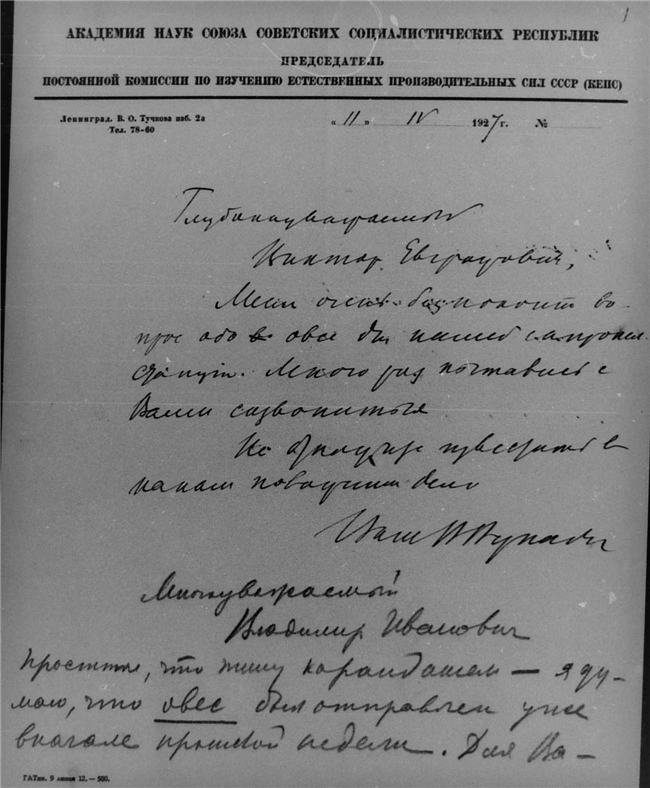 1
АКАДЕМИЯ НАУК СОЮЗА СОВЕТСКИХ СОЦИАЛИСТИЧЕСКИХ РЕСПУБЛИК
ПРЕДСЕДАТЕЛЬ
ПОСТОЯННОЙ КОМИССИИ ПО ИЗУЧЕНИЮ ЕСТЕСТВЕННЫХ ПРОИЗВОДИТЕЛЬНЫХ СИЛ СССР (КЕПС)
Ленинград. В. О. Тучкова наб. 2а
Тел. 78-60
„11" IV 1927 г. №
Глубокоуважаемый
Виктор Евграфович,
Меня очень беспокоит во-
прос об овсе для нашей
Много раз пытались с
Вами созвониться
Не откажите известить в
каком положении дело
Ваш
Многоуважаемый
Владимир Иванович
простите, что пишу карандашем — я ду-
маю, что овес был отправлен уже
вначале прошлой недели. Для Ва-